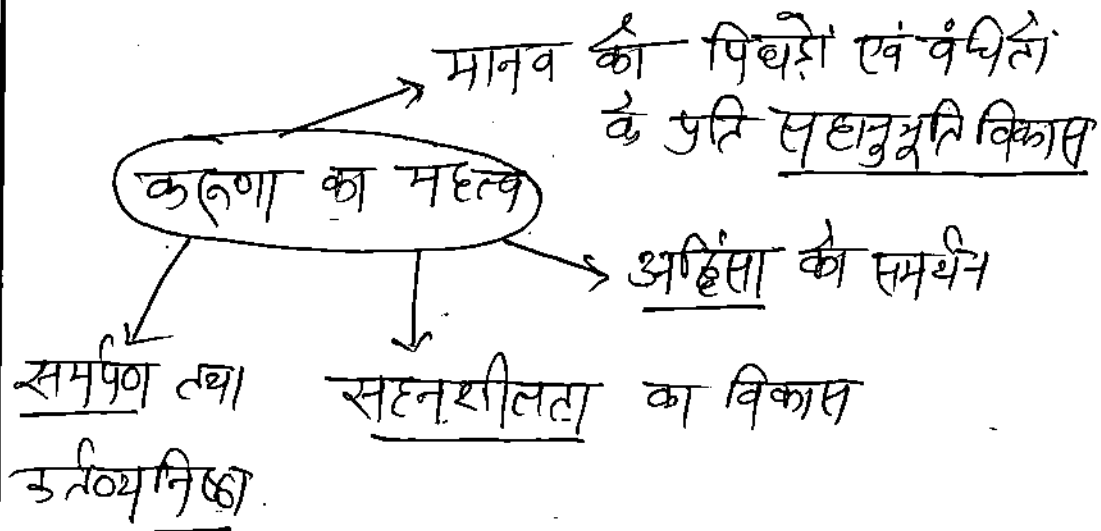 मानव को पिछड़ों एवं वंचितों
के प्रति सहानुभूति विकास
करूणा का महत्व
अहिंसा को समर्थन
समर्पण तथा
कर्तव्यनिष्ठा
सहनशीलता का विकास